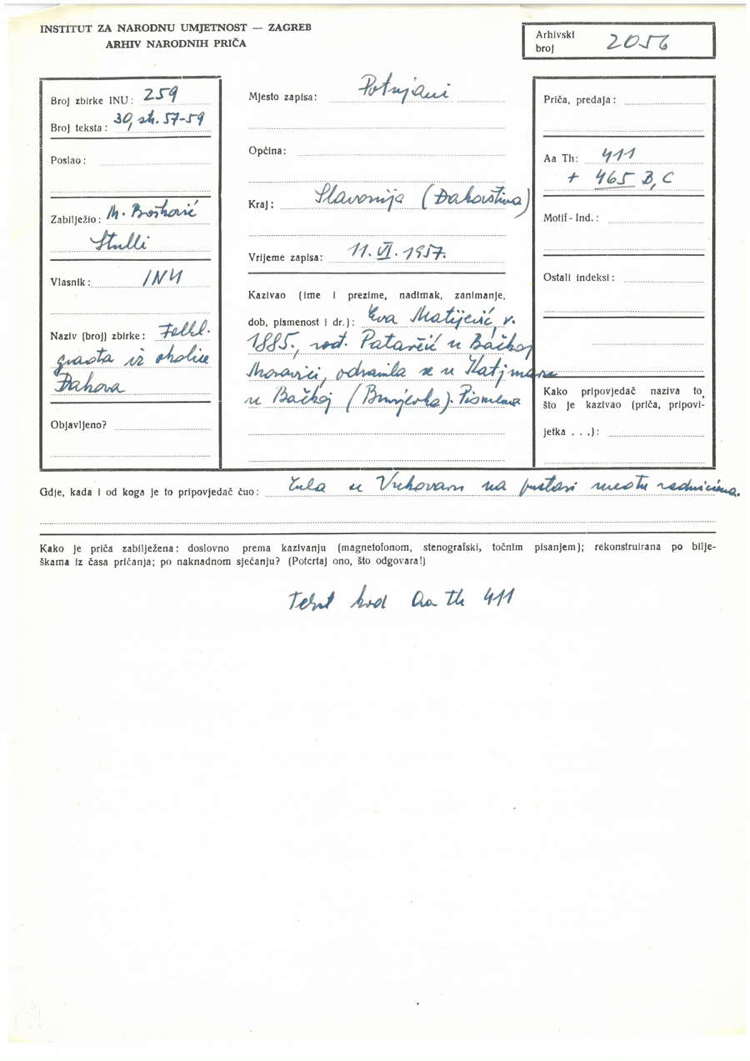 INSTITUT ZA NARODNU UMJETNOST — ZAGREB
ARHIV NARODNIH PRIČA
Arhivski
broj 2056
Broj zbirke INU: 259
Broj teksta: 30, str. 57-59
Poslao:
Zabilježio: M. Bošković
Stulli
Vlasnik: INU
Naziv (broj) zbirke: Folkl.
građa iz okolice
Đakova
Objavljeno?
Mjesto zapisa: Potnjani
Općina:
Kraj: Slavonija (Đakovština)
Vrijeme zapisa: 11. VI. 1957.
Kazivao (ime i prezime, nadimak, zanimanje,
dob, pismenost i dr.): Eva Matijević, r.
1885., rođ. Patarčić u Bačkoj
Moravici, odranila se u Katjmaru
u Bačkoj (Bunjevka). Pismena
Priča, predaja:
Aa Th: 411
+ 465 B, C
Motif - Ind.:
Ostali indeksi:
Kako pripovjedač naziva to
što je kazivao (priča, pripovi-
jetka . . .):
Gdje, kada i od koga je to pripovjedač čuo: čula u Vukovaru na pustari među radnicima.
Kako je priča zabilježena: doslovno prema kazivanju (magnetofonom, stenografski, točnim pisanjem); rekonstruirana po bilje-
škama iz časa pričanja; po naknadnom sjećanju? (Potcrtaj ono, što odgovara!)
Tekst kod Aa Th 411